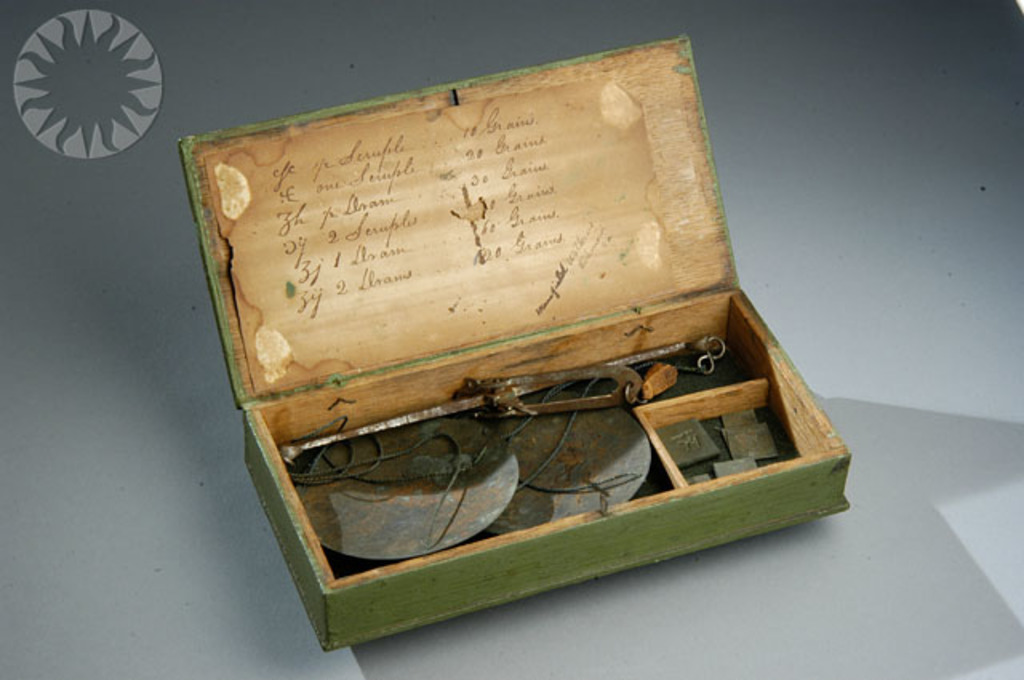 ℈ss p Scruple .. 10 Grains
℈ one Scruple .. 20 Grains
Ʒss p Dram .. 30 Grains
2 Scruple .. Grains
Ʒj 1 Dram .. 60 Grains
Ʒij 2 Drams .. 120 Grains
Mansfield